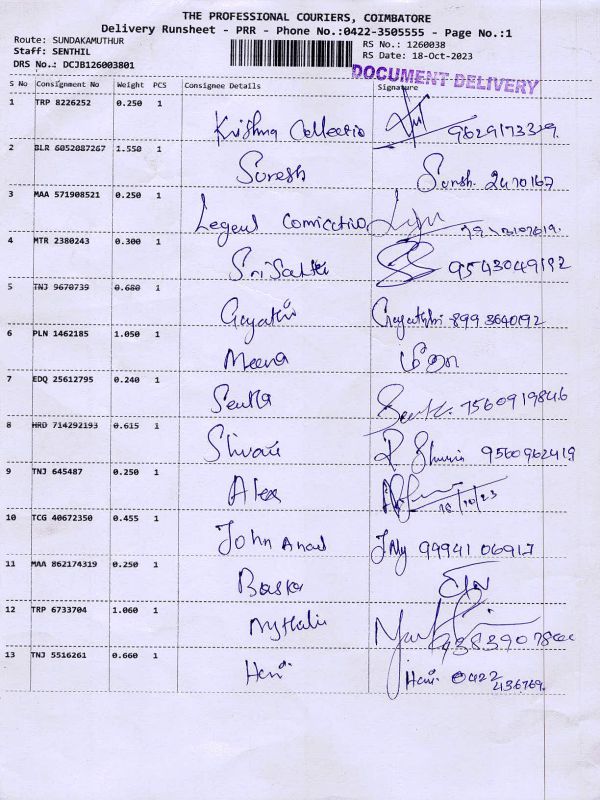 THE PROFESSIONAL COURIERS, COIMBATORE
Delivery Runsheet - PRR - Phone No.:0422-3505555 - Page No.:1
Route: SUNDAKAMUTHUR
RS No.: 1260038
Staff: SENTHIL
RS Date: 18-Oct-2023
DRS No.: DCJB126003801
DOCUMENT DELIVERY
S No Consignment No Weight PCS Consignee Details Signature
1 TRP 8226252 0.250 1
Krishna Collectio 9629173329
2 BLR 6052087267 1.550 1
Suresh Suresh 2470167
3 MAA 571908521 0.250 1
Legend
4 MTR 2380243 0.300 1
Sri Sakthi 9543049192
5 TNJ 9670739 0.680 1
Gayathri Gayathri 8993640192
6 PLN 1462185 1.050 1
Meena மீனா
7 EDQ 25612795 0.240 1
7560919846
8 HRD 714292193 0.615 1
9560962419
9 TNJ 645487 0.250 1
Alex 18/10/23
10 TCG 40672350 0.455 1
John Anand 99941 06917
11 MAA 862174319 0.250 1
Baskar
12 TRP 6733704 1.060 1
13 TNJ 5516261 0.660 1
Hari Hari 0422
436769